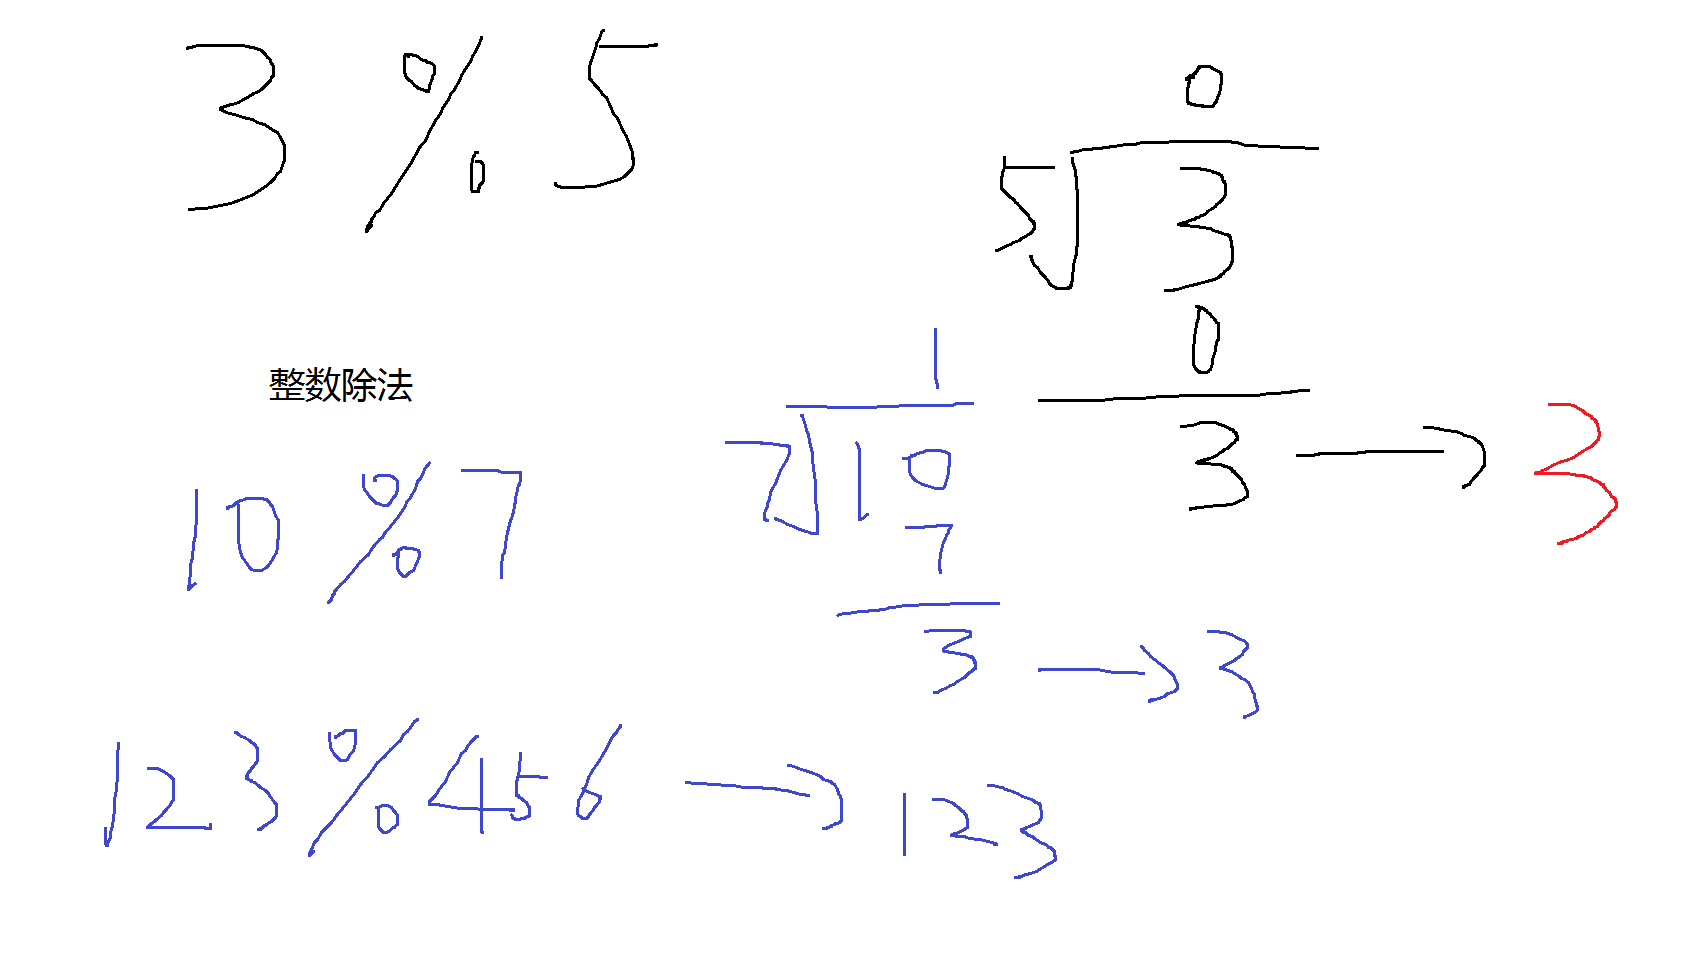 3 % 5
0
5 3
0
3 → 3
整数除法
10 % 7
1
7 10
7
3 → 3
123 % 456 → 123